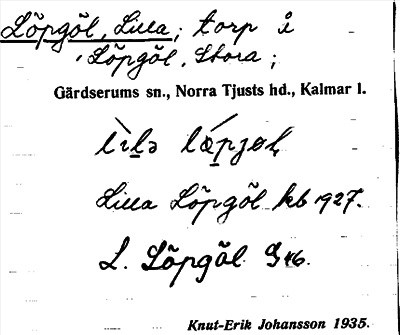 Löpgöl, Lilla; torp i
Löpgöl, Stora;
Gärdserums sn., Norra Tjusts hd., Kalmar l.
Lilla Löpgöl kb 1927.
L. Löpgöl
Knut-Erik Johansson 1935.